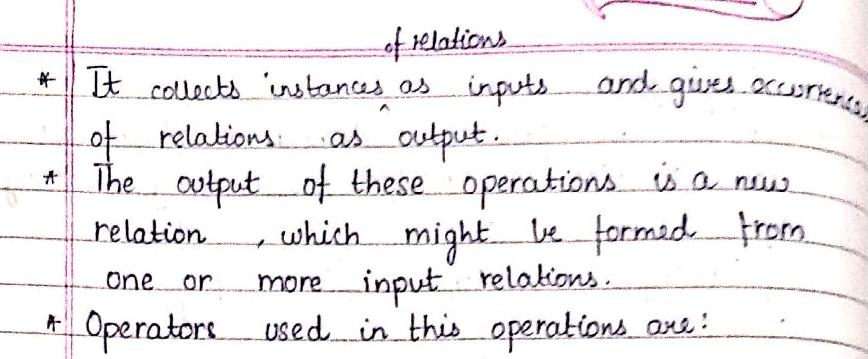 of relations
* It collects instances ^ as inputs and gives occurrences
of relations as output.
* The output of these operations is a new
relation , which might be formed from
one or more input relations.
* Operators used in this operations are: